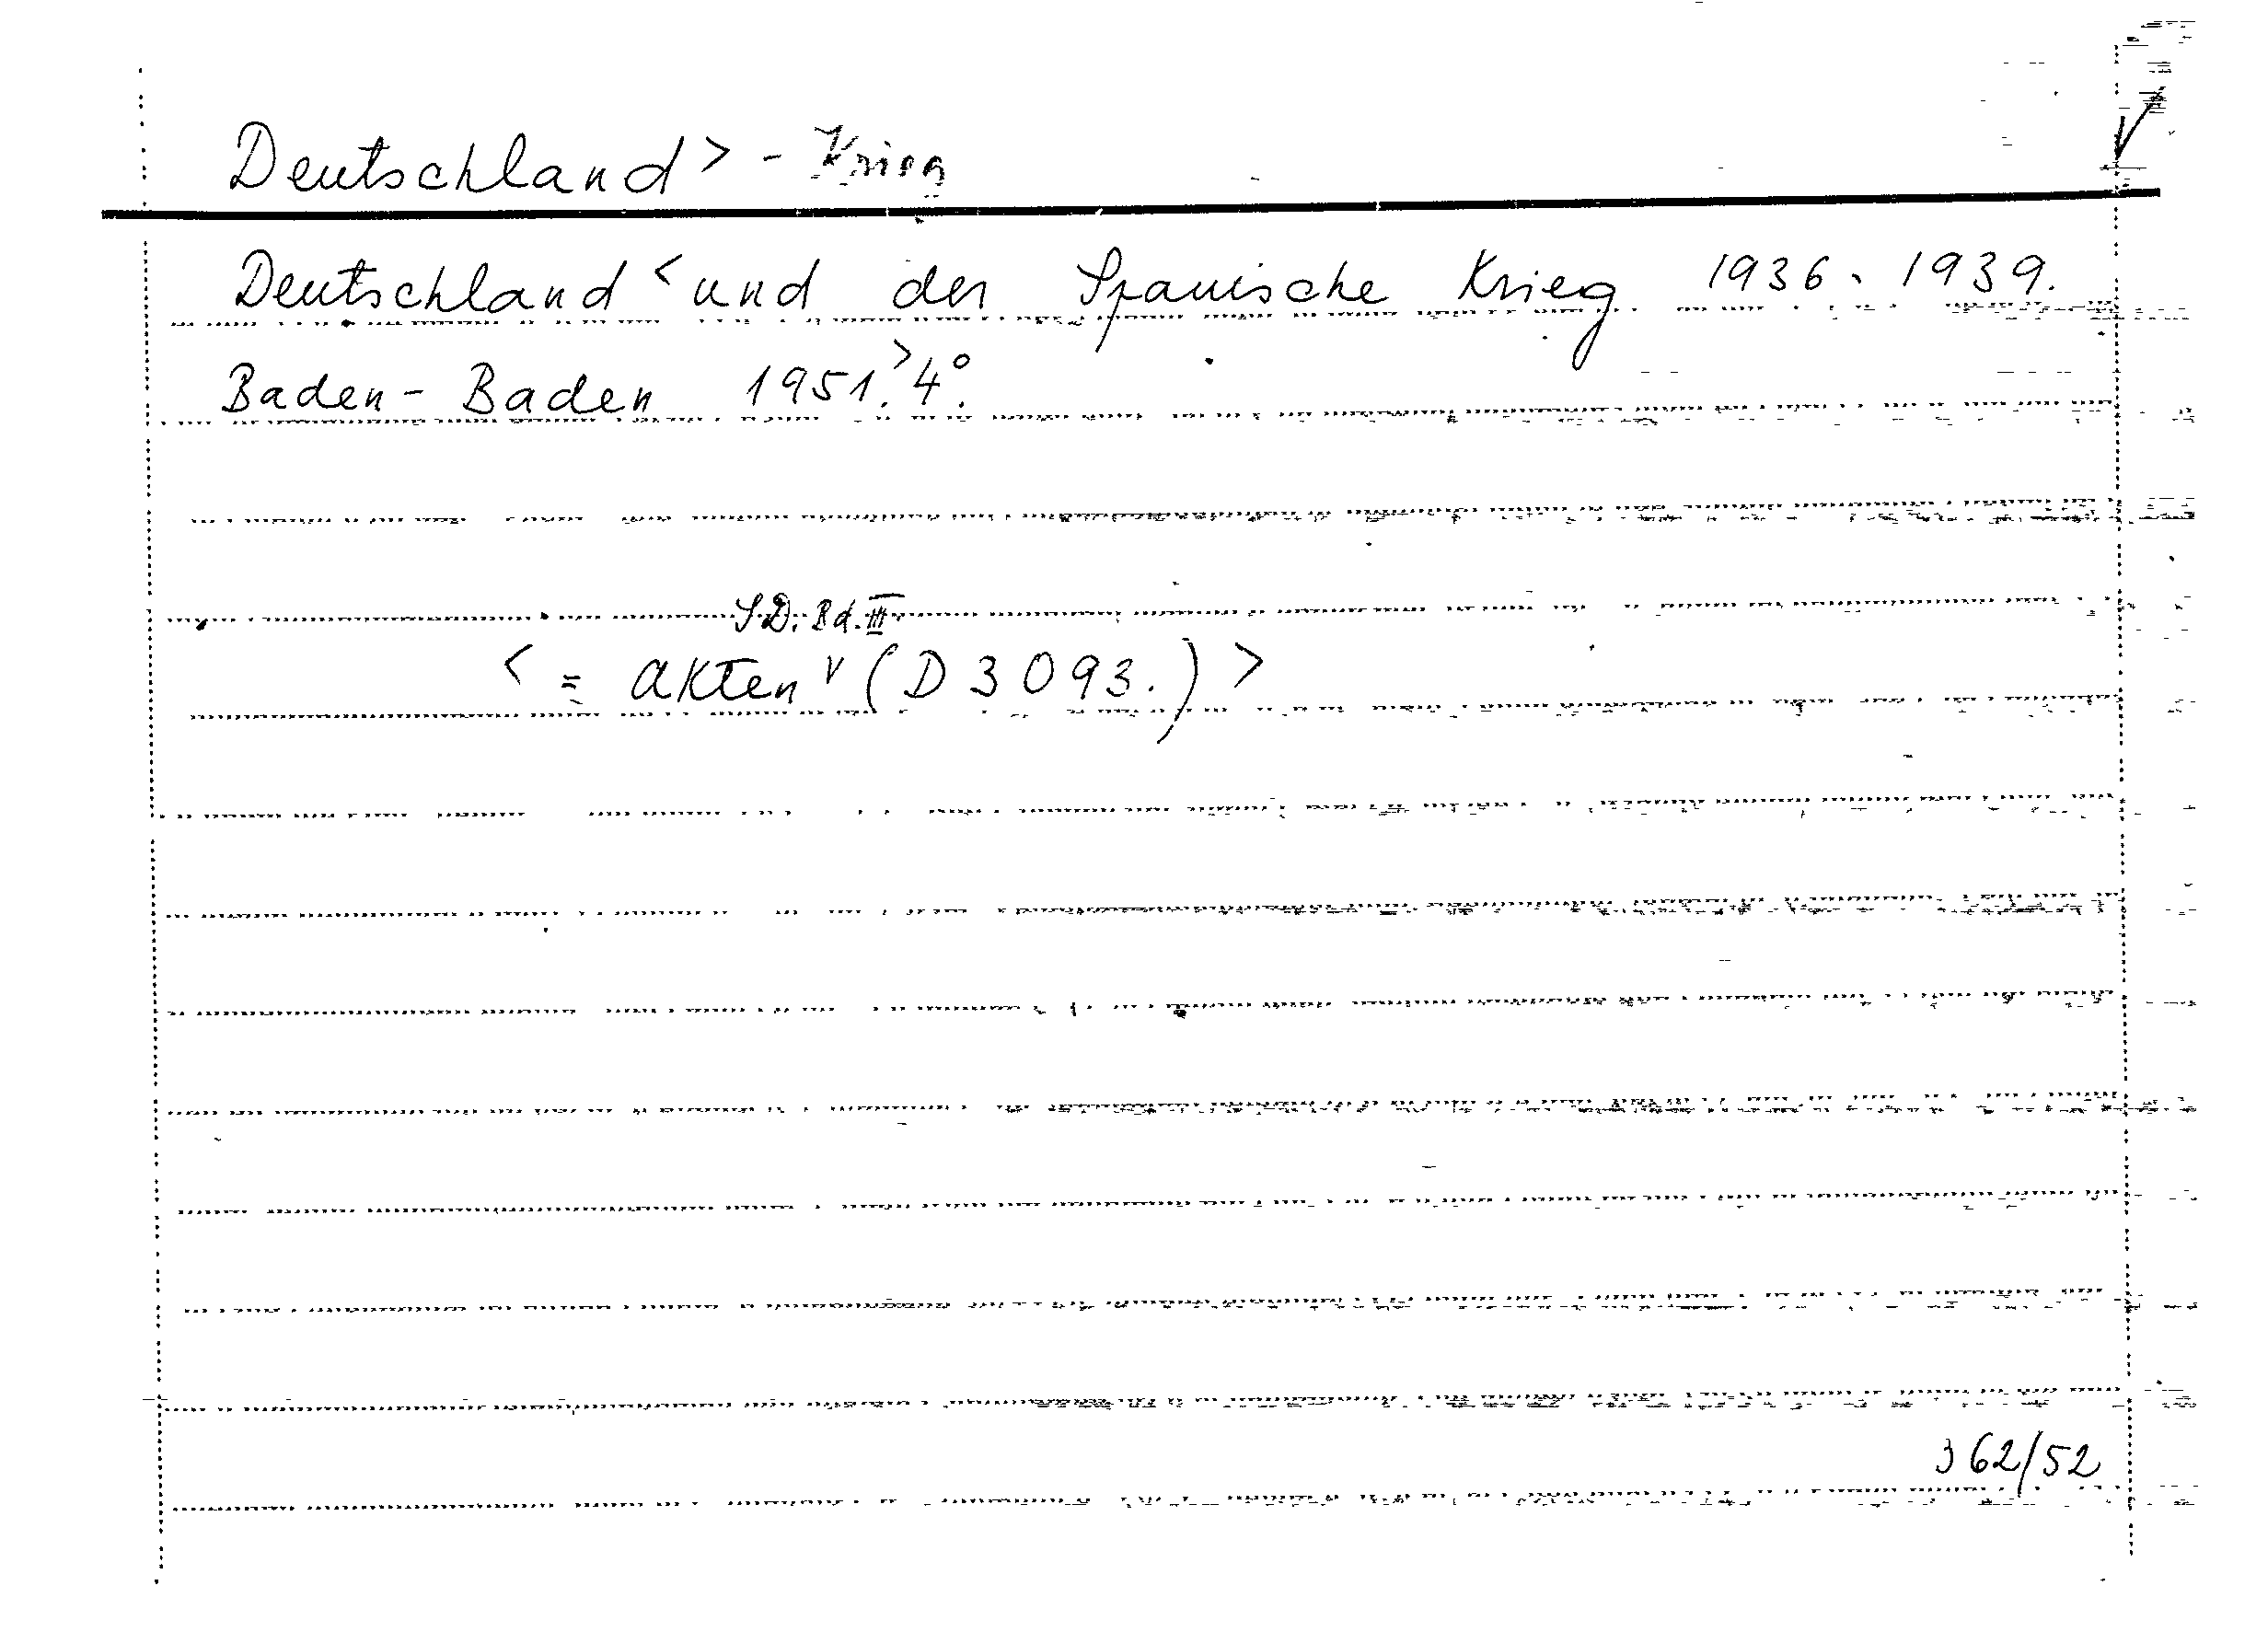 Deutschland > - Krieg
Deutschland < und der Spanische Krieg 1936-1939.
Baden-Baden 1951.> 4°.
S.D. Bd. III
< = Akten v (D 3093.) >
362/52